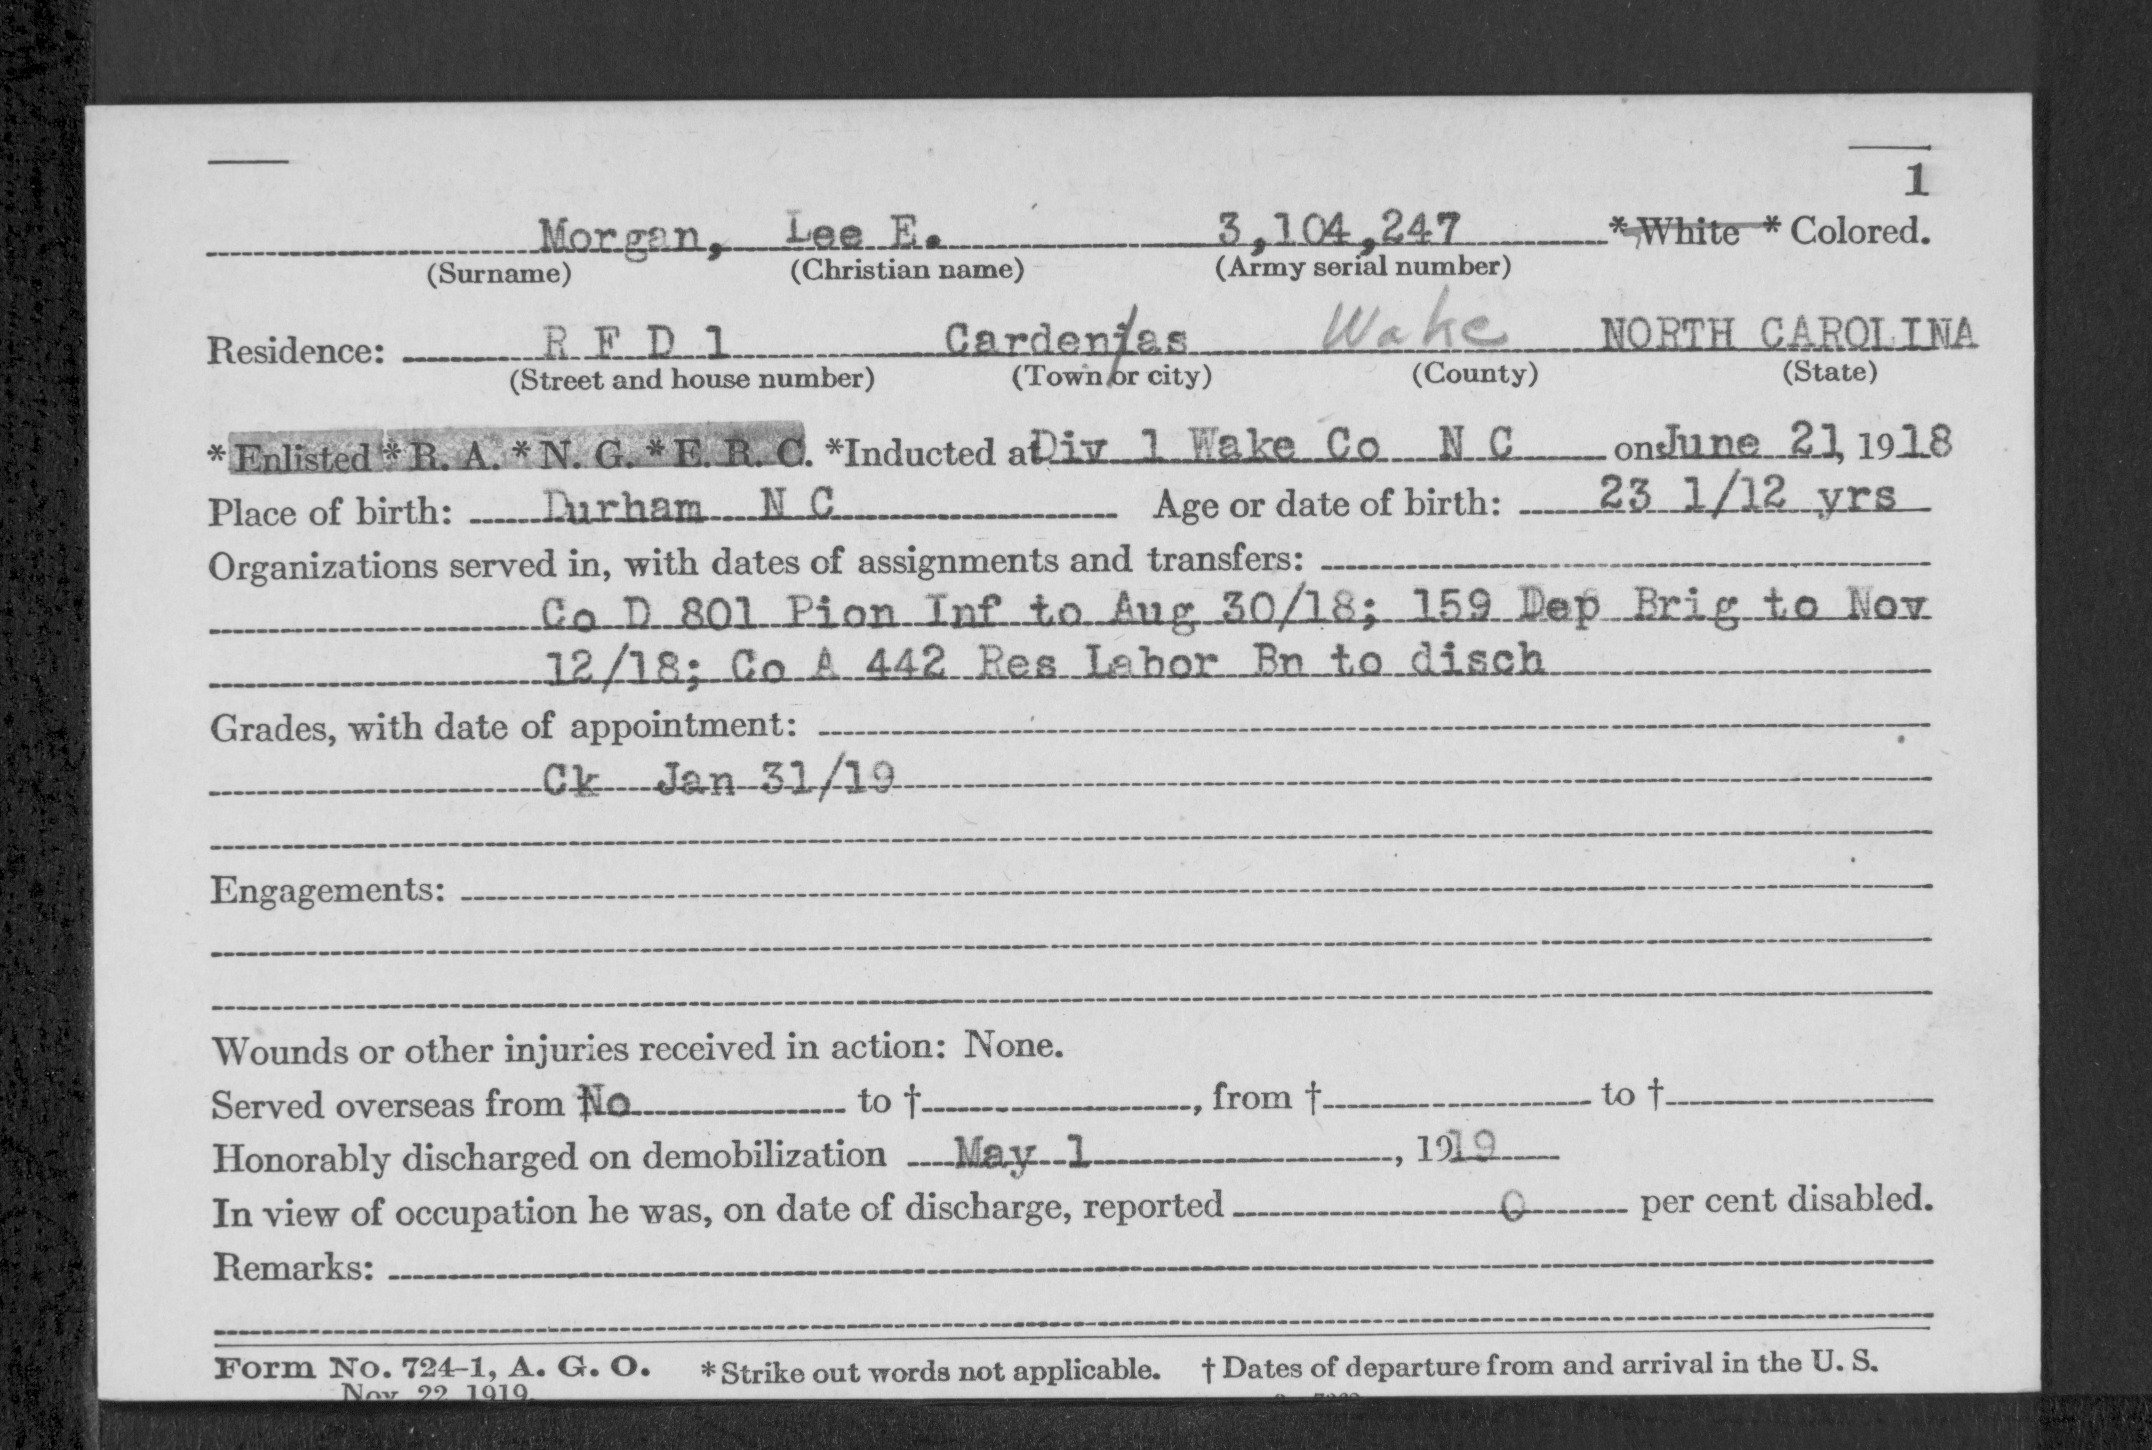 1
Morgan, Lee E. 3,104,247 * White * Colored.
(Surname) (Christian name) (Army serial number)
Residence: R F D 1 Cardenias Wake NORTH CAROLINA
(Street and house number) (Town or city) (County) (State)
* Enlisted * R. A. * N. G. * E. R. C. *Inducted at Div 1 Wake Co N C on June 21, 1918
Place of birth: Durham N C Age or date of birth: 23 1/12 yrs
Organizations served in, with dates of assignments and transfers:
Co D 801 Pion Inf to Aug 30/18; 159 Dep Brig to Nov
12/18; Co A 442 Res Labor Bn to disch
Grades, with date of appointment:
Ck Jan 31/19
Engagements:
Wounds or other injuries received in action: None.
Served overseas from † No to †, from † to †
Honorably discharged on demobilization May 1, 1919
In view of occupation he was, on date of discharge, reported 0 per cent disabled.
Remarks:
Form No. 724-1, A. G. O. * Strike out words not applicable. † Dates of departure from and arrival in the U. S.
Nov. 22, 1919.